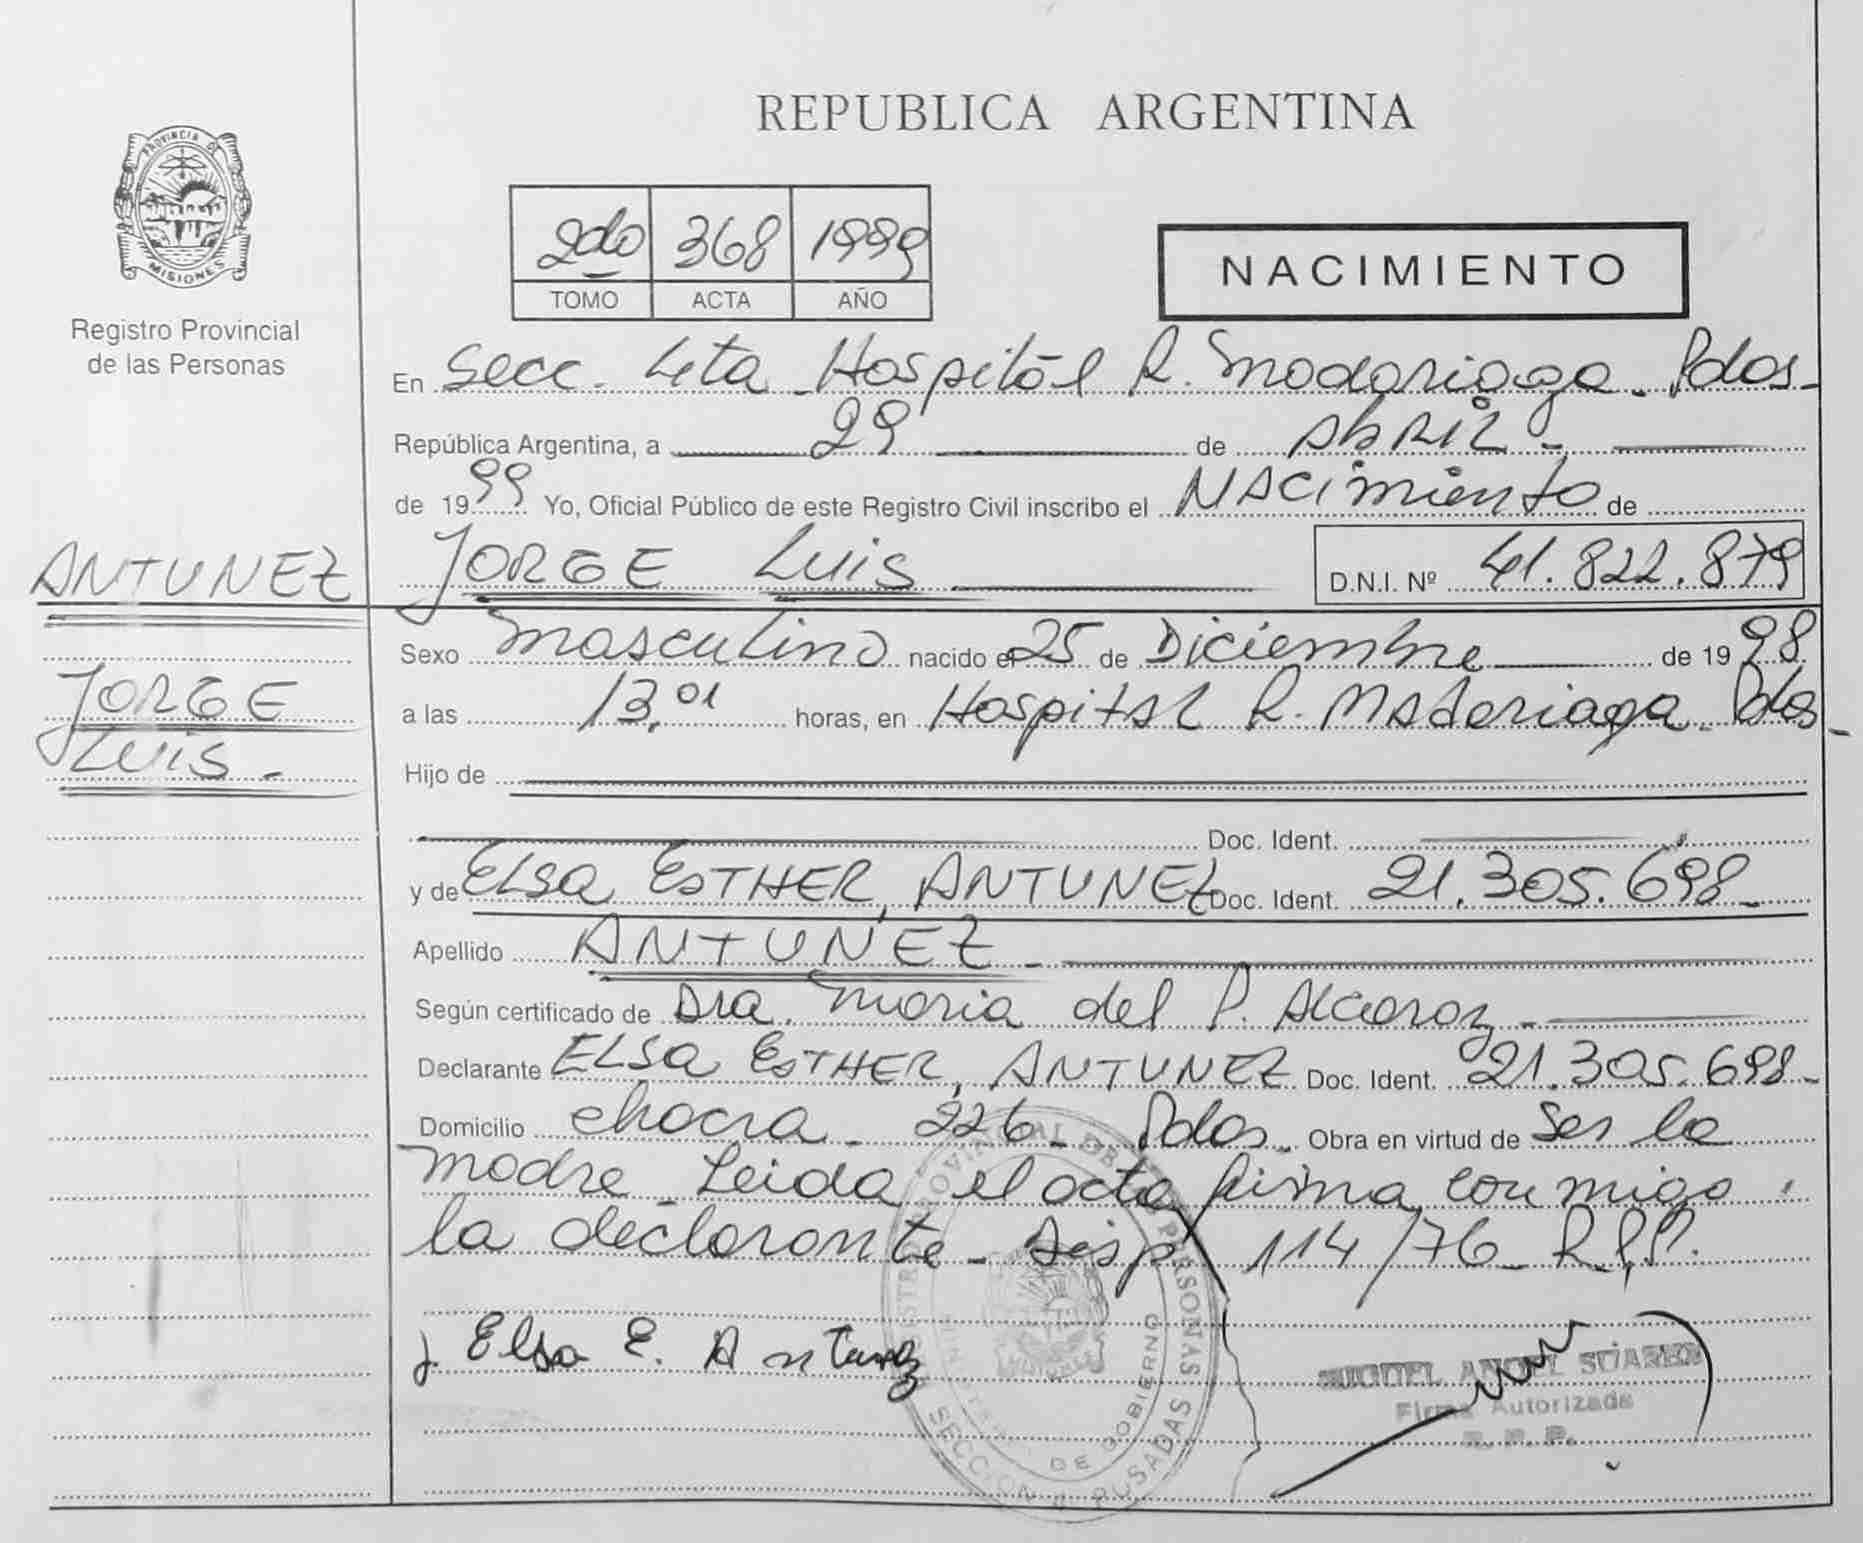 REPUBLICA ARGENTINA
PROVINCIA DE
MISIONES
Registro Provincial
de las Personas
2do 368 1999
TOMO ACTA AÑO
NACIMIENTO
En Secc. 4ta Hospital R. Madariaga. Pdas-
República Argentina, a 29 de Abril.-
de 1999 Yo, Oficial Público de este Registro Civil inscribo el NACimiento de
ANTUNEZ
JORGE LUIS D.N.I. Nº 41.822.879
Sexo masculino nacido el 25 de Diciembre de 1998
JORGE
a las 13,01 horas, en Hospital R. Madariaga. Pdas-
LUIS.-
Hijo de
Doc. Ident.
y de ELSA ESTHER, ANTUNEZ Doc. Ident. 21.305.698-
Apellido ANTUNEZ-
Según certificado de Dra. Maria del P. Alcaraz-
Declarante ELSA ESTHER, ANTUNEZ Doc. Ident. 21.305.698-
Domicilio chacra. 226- Pdas. Obra en virtud de Ser la
madre- Leida el acta firma conmigo
la declarante- Disp 114/76- R.P.P.
Elsa E. Antunez
MIGUEL ANGEL SUAREZ
Firma Autorizada
R. P. P.
PROVINCIAL DE PERSONAS
DE GOBIERNO
SECCION 4 POSADAS